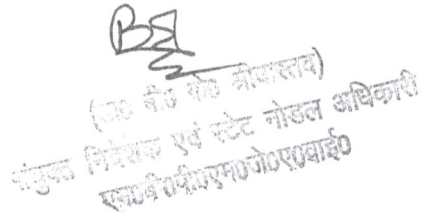 (डा० वी० के० श्रीवास्तव)
संयुक्त निदेशक एवं स्टेट नोडल अधिकारी
एम०बी०पी०एम०जे०ए०वाई०